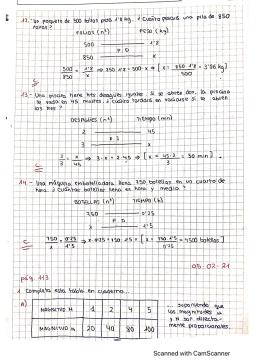 12.- Un paquete de 500 folios pesa 1'8 kg. ¿Cuánto pesará una pila de 850
folios?
FOLIOS (nº) PESO (kg)
500 1'8
P D
850 x
500/850 = 1'8/x ⇒ 850 · 1'8 = 500 · x ⇒ [x = 850 · 1'8/500 = 3'06 kg]
C
13.- Una piscina tiene tres desagües iguales. Si se abren dos, la piscina
se vacía en 45 minutos. ¿Cuánto tardará en vaciarse si se abren
los tres?
DESAGÜES (nº) Tiempo (min)
2 45
P I
3 x
C
2/3 = x/45 ⇒ 3 · x = 2 · 45 ⇒ [x = 45 · 2/3 = 30 min]
14.- Una máquina embotelladora llena 750 botellas en un cuarto de
hora. ¿Cuántas botellas llena en hora y media?
BOTELLAS (nº) TIEMPO (h)
750 0'25
P D
x 1'5
C
750/x = 0'25/1'5 ⇒ x · 0'25 = 750 · 1'5 ⇒ [x = 750 · 1'5/0'25 = 4500 botellas]
05-02-21
pág. 113
1 Completa esta tabla en cuaderno...
A)
MAGNITUD M 1 2 4 5
MAGNITUD N 20 40 80 100
... suponiendo que
las magnitudes M
y N son directa-
mente proporcionales.
Scanned with CamScanner